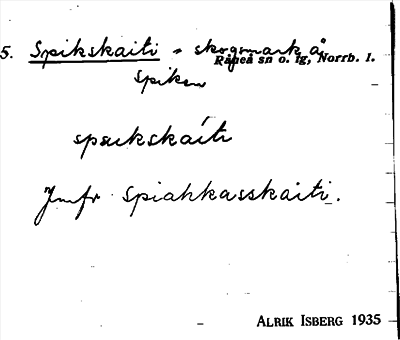 5. Spikskaiti = skogsmark å
Råneå sn o. tg, Norrb. l.
Spiken
spikskaiti
Jmfr Spiahkasskaiti.
ALRIK ISBERG 1935